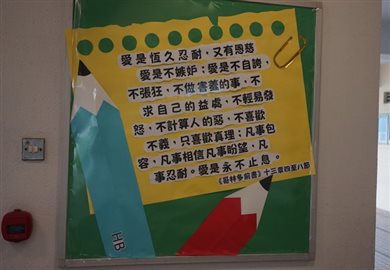 愛是恆久忍耐，又有恩慈
愛是不嫉妒；愛是不自誇，
不張狂，不做害羞的事，不
求自己的益處，不輕易發
怒，不計算人的惡，不喜歡
不義，只喜歡真理；凡事包
容，凡事相信凡事盼望，凡
事忍耐。愛是永不止息。
《哥林多前書》十三章四至八節
HB